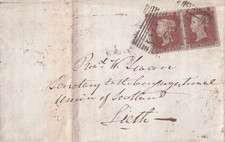 Revd. W.
Secretary to the Congregational
Union of Scotland
Leith